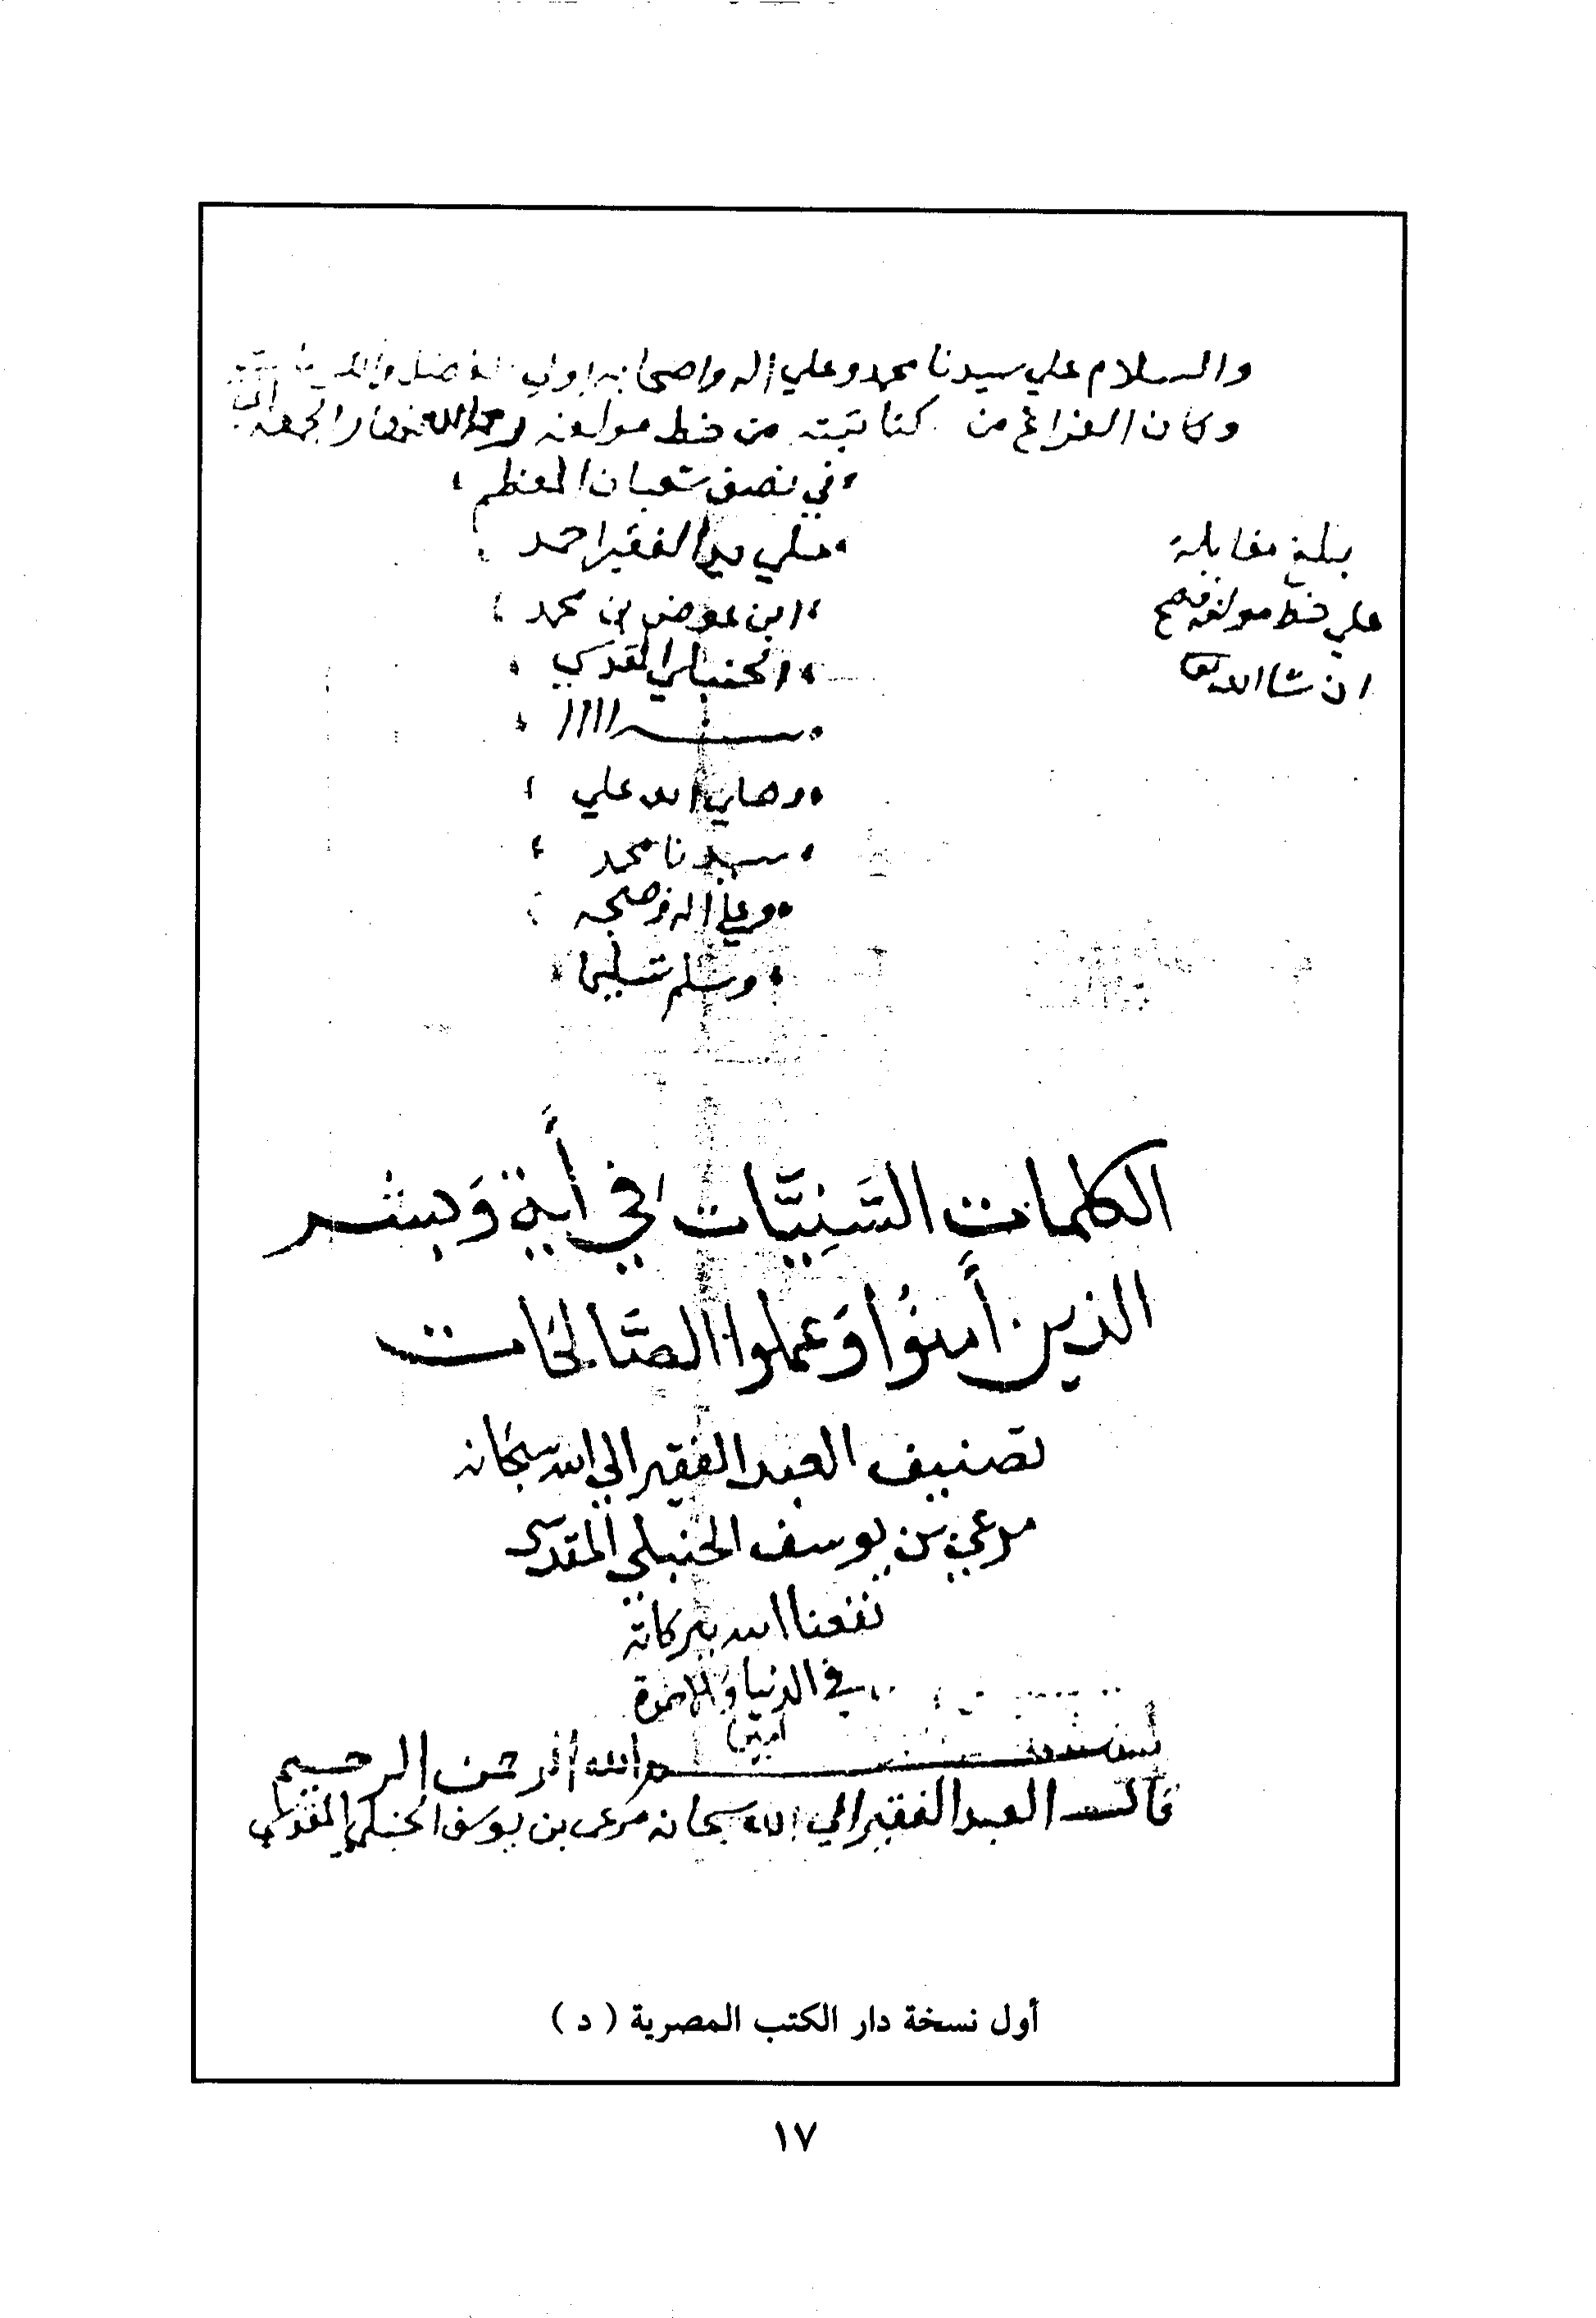 والسلام علي سيدنا محمد وعلي اله واصحابه اولي الفضل
وكان الفراغ من كتابته من خط مولفه رحمه الله نهار الجمعه
في نصف شعبان المعظم
علي يد الفقير احمد
ابن عوض بن محمد
الحنبلي المقدسي
وصلي الله علي
سيدنا محمد
وعلي اله وصحبه
وسلم تسليما
بلغ مقابلة
علي خط مولفه فصح
ان شا الله تعا
الكلمات السَّنِيَّات في أية وَبشر
الذين أمنُوا وَعملوا الصَّالحَات
تصنيف العبد الفقير الي الله سبحانه
مرعي بن يوسف الحنبلي المقدسي
نفعنا الله ببركاته
في الدنيا والاخرة
امين
بسم الله الرحمن الرحيم
قال العبد الفقير الي الله سبحانه مرعي بن يوسف الحنبلي المقدسي
أول نسخة دار الكتب المصرية ( د )
١٧